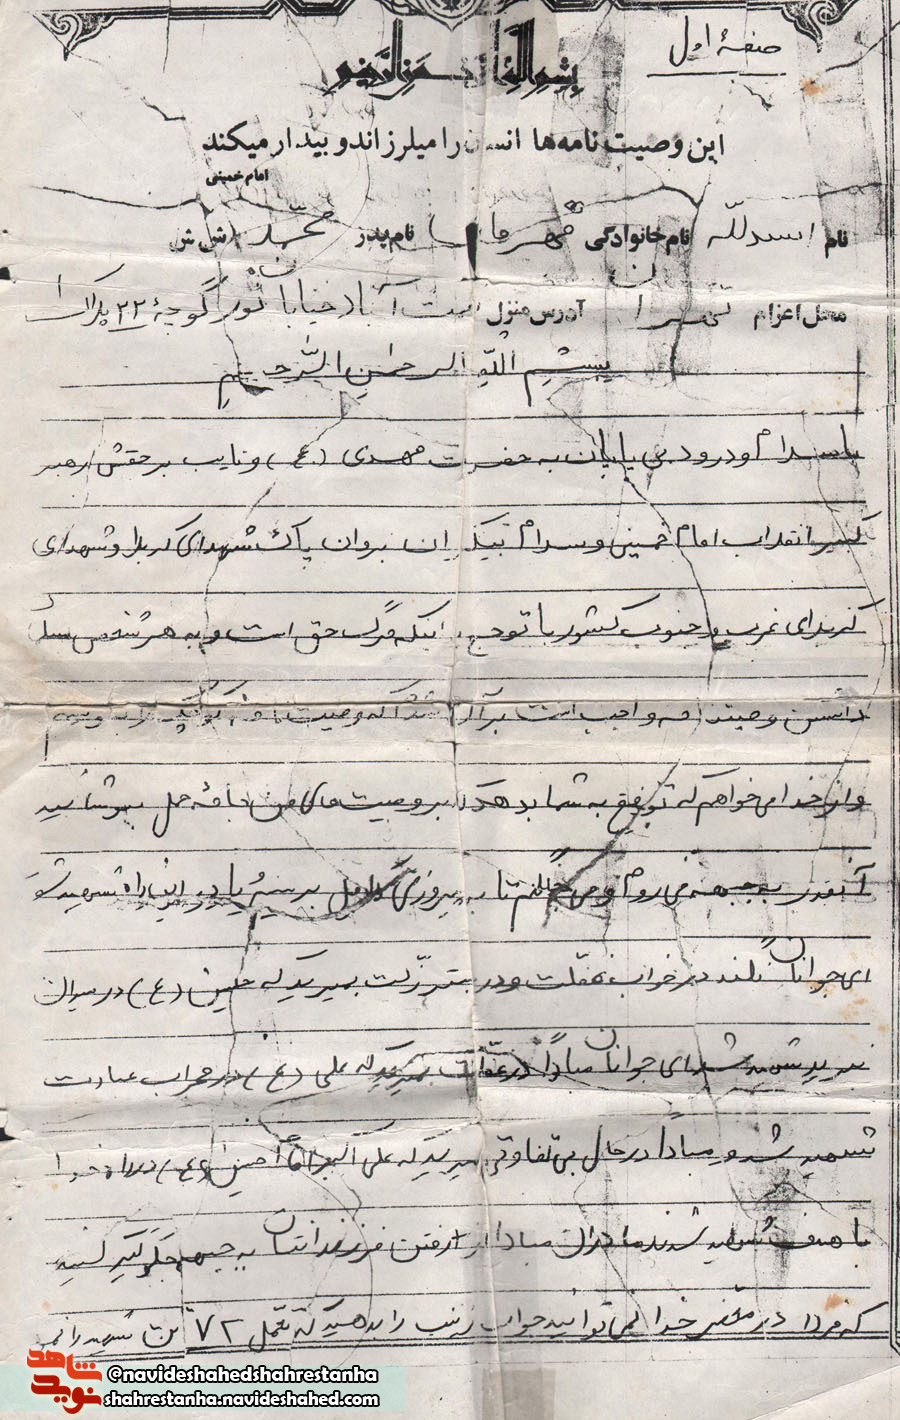 صفحهٔ اول
بسم الله الرحمن الرحیم
این وصیت نامه‌ها انسان را میلرزاند و بیدار میکند
امام خمینی
نام اسدلله نام خانوادگی نام پدر محمد ش ش
محل اعزام تهران آدرس منزل آباد خیابان کوچهٔ ۲۲ پلاک
بسم الله الرحمن الرحیم
با سلام و درود بی پایان به حضرت مهدی (عج) و نایب بر حقش رهبر
کبیر انقلاب امام خمینی و سلام بیکران بروان پاک شهدای کربلا و شهدای
کربلای غرب و جنوب کشور با توجه اینکه مرگ حق است و به هر شخص
داشتن وصیتنامه واجب است بر آن شدم که وصیت نامه کوچکی
و از خدا می‌خواهم که توفیق به شما بدهد که بر وصیت های من جامهٔ عمل بپوشانید
آنقدر به جبهه می روم و می جنگم تا به پیروزی کامل برسم یا در این راه شهید
ای جوانان نکند در خواب غفلت و در بستر ذلت بمیرید که حسین (ع) در میدان
نبرد شهید شد ای جوانان مبادا در غفلت بمیرید که علی (ع) در محراب عبادت
شهید شد و مبادا در حال بی تفاوتی بمیرید که علی اکبر حسین (ع) در راه خدا
با هدف شهید شدند مادران مبادا از رفتن فرزندانتان به جبهه جلوگیری کنید
که فردا در محضر خدا نمی توانید جواب زینب را بدهید که تحمل ۷۲ تن شهید را
شاهد نوید
@navideshahedshahrestanha
shahrestanha.navideshahed.com